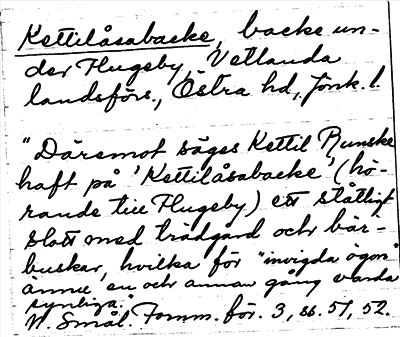 Kettilåsabacke, backe un-
der Flugeby, Vetlanda
landsförs., Östra hd, Jönk. l.
"Däremot säges Kettil Runske
haft på 'Kettilåsabacke' (hö-
rande till Flugeby) ett ståtligt
slott med trädgård och bär-
buskar, hvilka för "invigda ögon"
ännu en och annan gång varda
synliga."
N. Smål. Fornm. för. 3, ss. 51, 52.